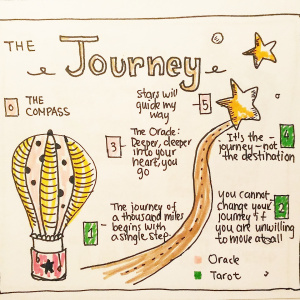 THE
Journey
0 THE
COMPASS
Stars will
guide my
way
- 5
3 - The Oracle:
Deeper, deeper
into your
heart, you
go
4
It's the -
journey - not
the destination
1 - The journey of
a thousand miles
begins with
a single step.
you cannot
change your - 2
journey if
you are unwilling
to move at all
Oracle
Tarot